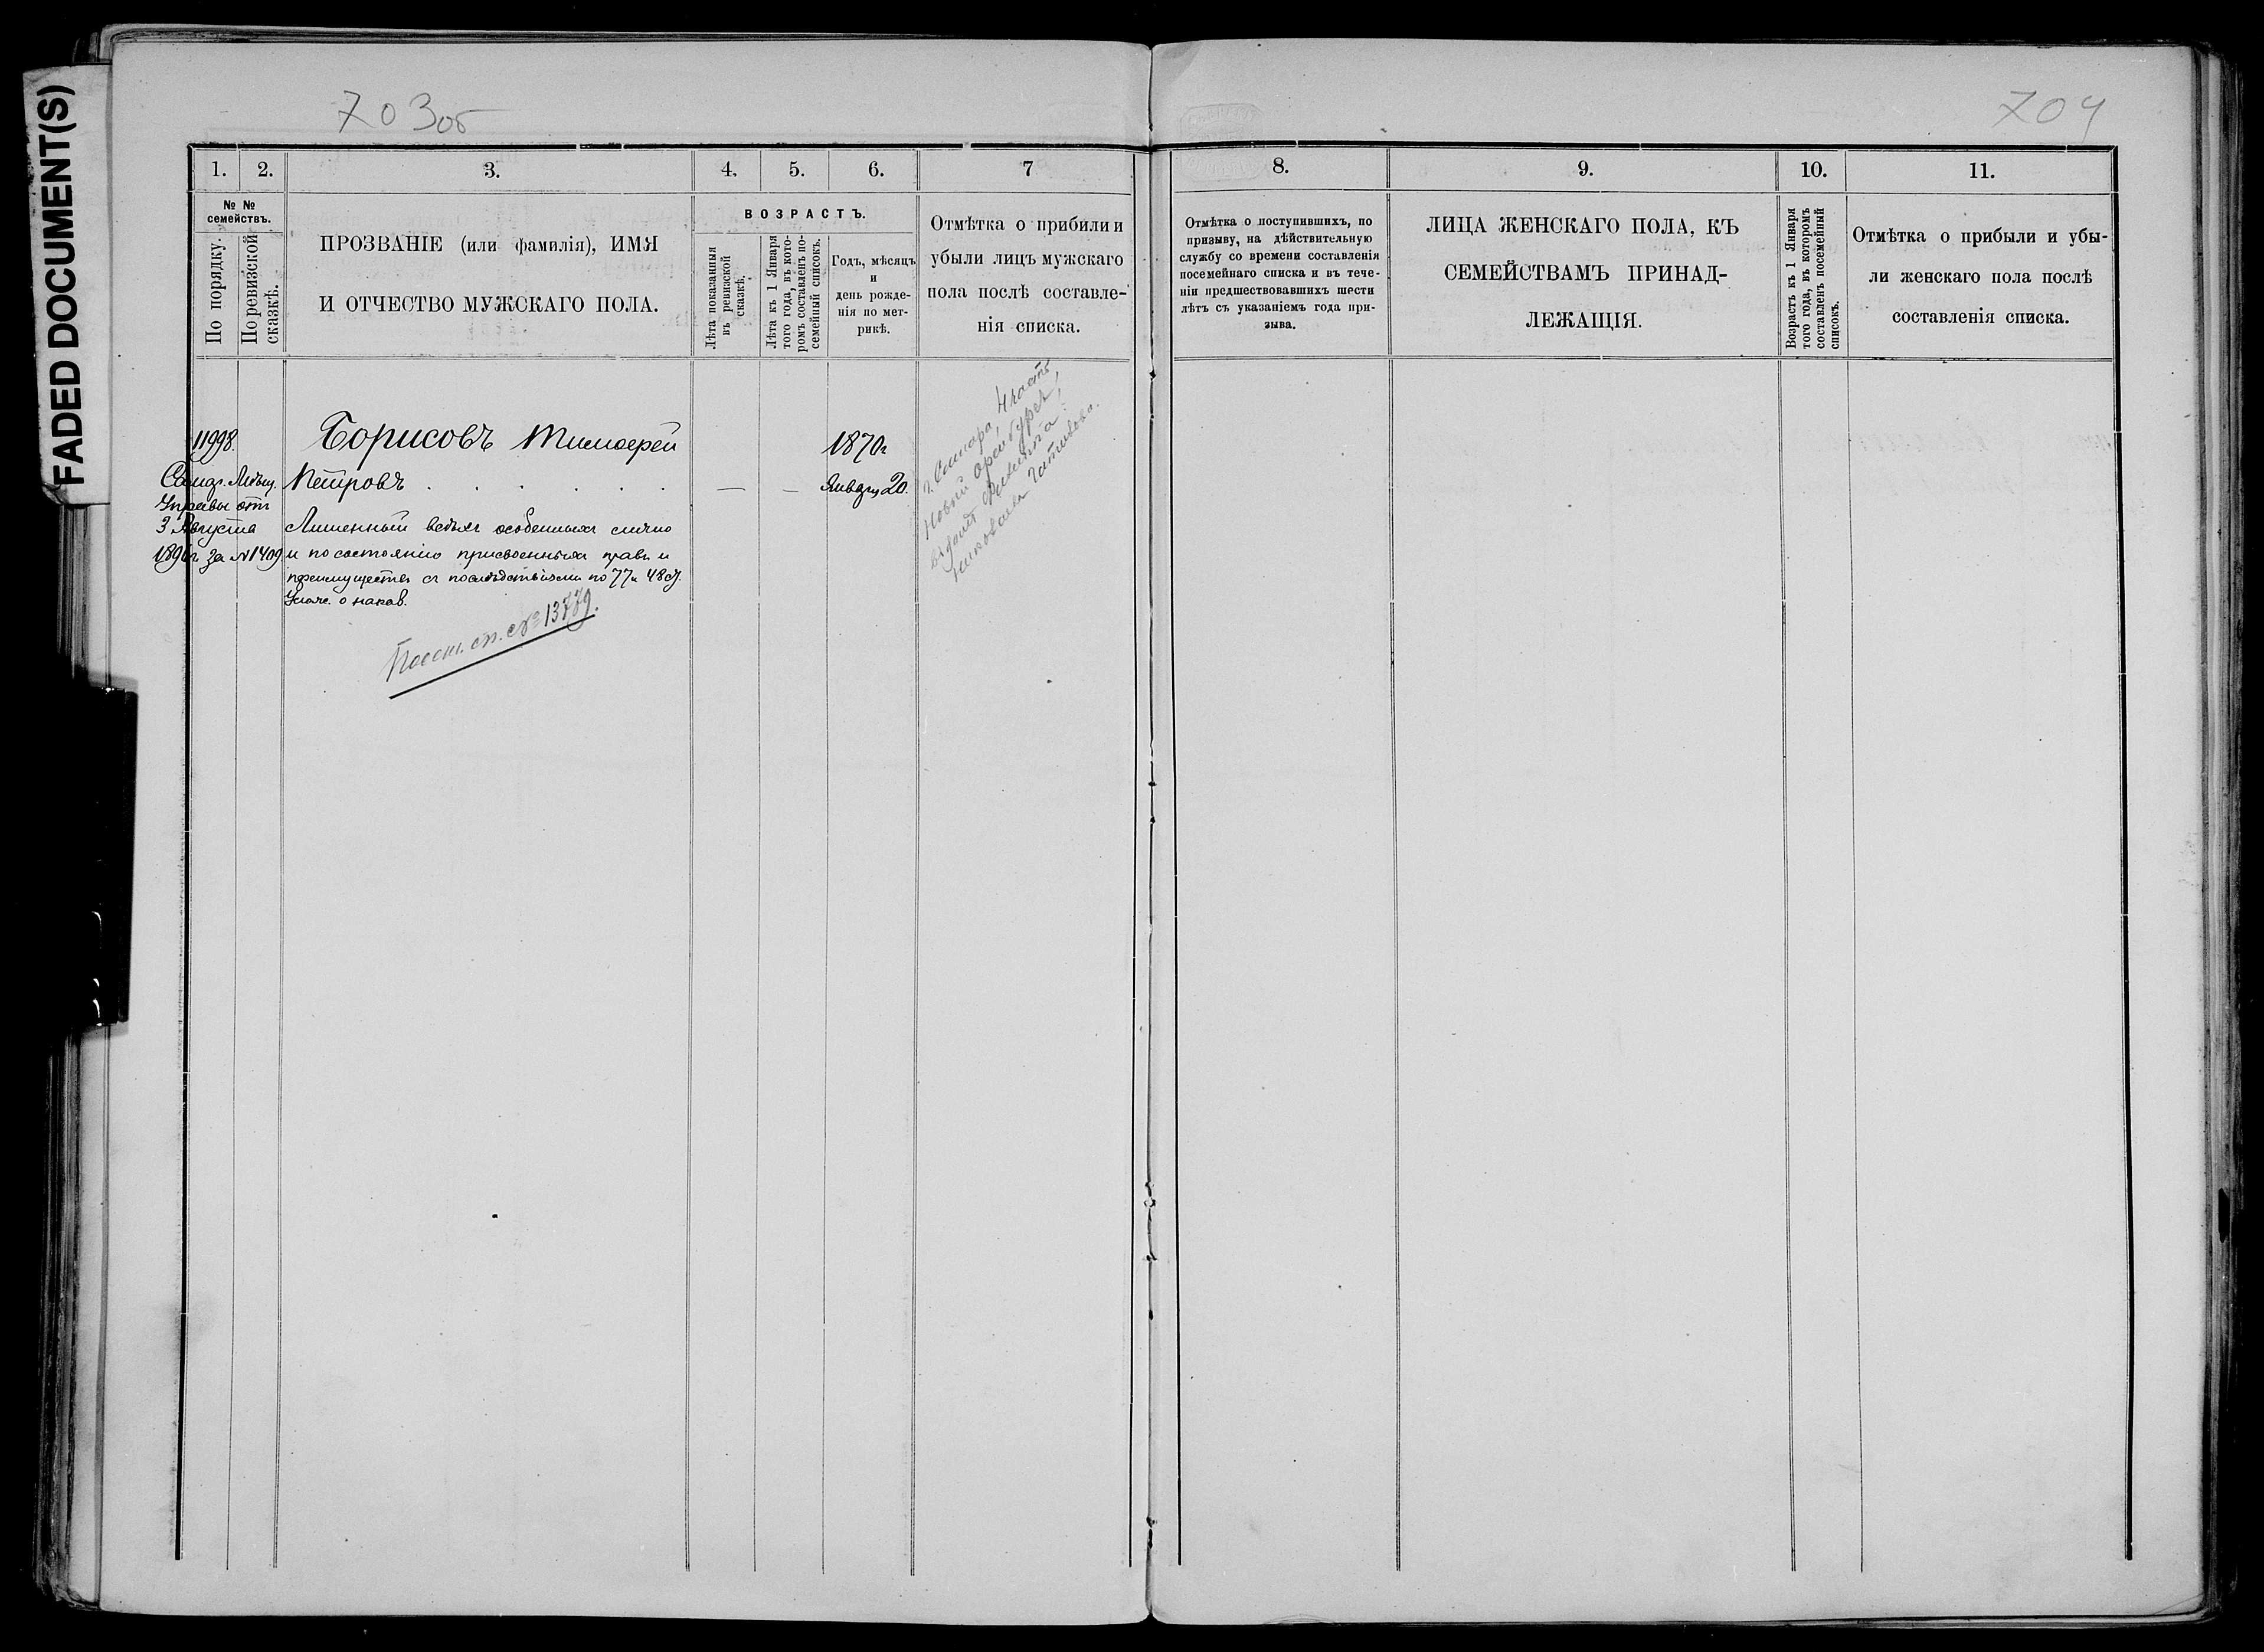 FADED DOCUMENT(S)
703об
704
1.
2.
3.
4.
5.
6.
7
8.
9.
10.
11.
№ №
семействъ.
По порядку.
По ревизской
сказкѣ.
ПРОЗВАНІЕ (или фамилія), ИМЯ
И ОТЧЕСТВО МУЖСКАГО ПОЛА.
ВОЗРАСТЪ.
Лѣта показанныя
въ ревизской
сказкѣ.
Лѣта къ 1 Января
того года, въ кото-
ромъ составленъ по-
семейный списокъ.
Годъ, мѣсяцъ
и
день рожде-
нія по мет-
рикѣ.
Отмѣтка о прибили и
убыли лицъ мужскаго
пола послѣ составле-
нія списка.
Отмѣтка о поступившихъ, по
призыву, на дѣйствительную
службу со времени составленія
посемейнаго списка и въ тече-
ніи предшествовавшихъ шести
лѣтъ съ указаніемъ года при-
зыва.
ЛИЦА ЖЕНСКАГО ПОЛА, КЪ
СЕМЕЙСТВАМЪ ПРИНАД-
ЛЕЖАЩІЯ.
Возрастъ къ 1 Января
того года, въ которомъ
составленъ посемейный
списокъ.
Отмѣтка о прибыли и убы-
ли женскаго пола послѣ
составленія списка.
11998.
Управы отъ
3 Августа
за №1409.
Борисовъ Тимофей
Петровъ . . . . . .
Лишенный всѣхъ особенныхъ лично
и по состоянію присвоенныхъ правъ и
преимуществъ съ послѣдствіями по 77 и 48 ст.
Улож. о наказ.
Посем. сп. №13779.
—
—
1870г
Января 20.
г. Самара, 4 часть,
Новый Оренбургъ,